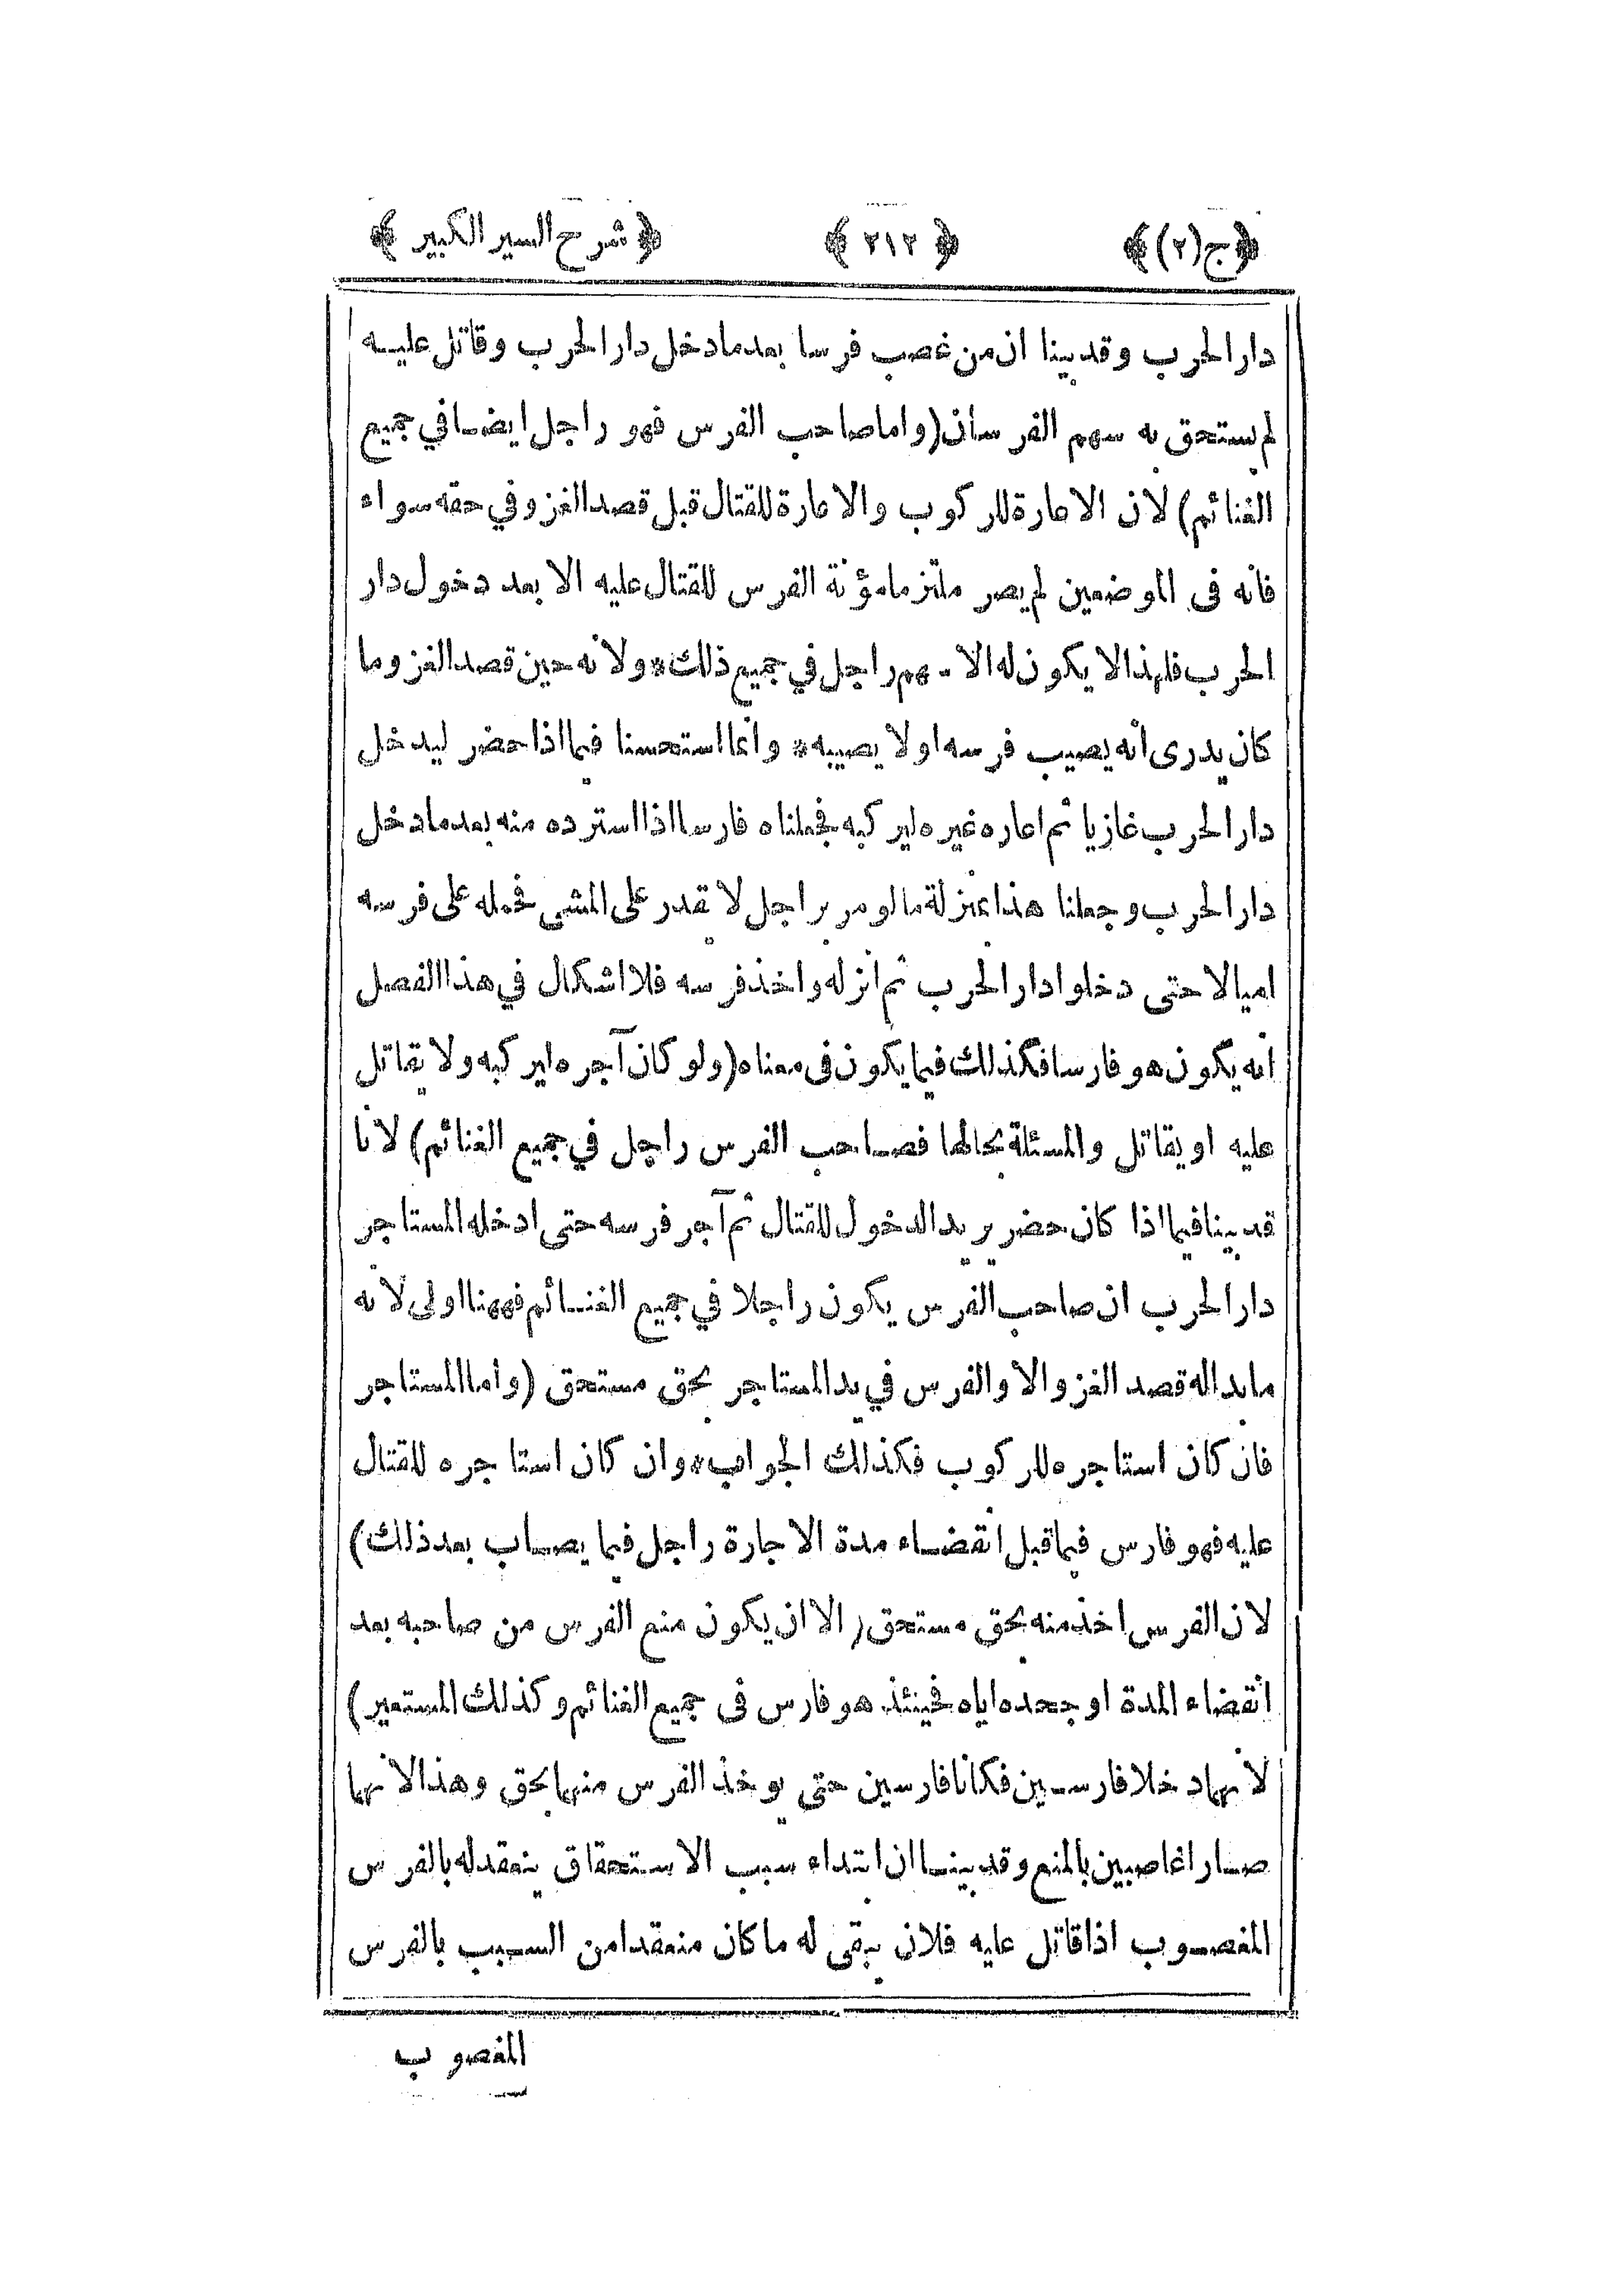 ﴿ج(٢)﴾ ﴿٢١٢﴾ ﴿شرح السير الكبير﴾
دار الحرب وقد بينا ان من غصب فرسا بعد ما دخل دار الحرب وقاتل عليه
لم يستحق به سهم الفرسان (واما صاحب الفرس فهو راجل ايضا في جميع
الغنائم) لان الاعارة للركوب والاعارة للقتال قبل قصد الغزو في حقه سواء
فانه في الموضعين لم يصر ملتزما مؤنة الفرس للقتال عليه الا بعد دخول دار
الحرب فلهذا لا يكون له الا سهم راجل في جميع ذلك * ولانه حين قصد الغزو ما
كان يدرى انه يصيب فرسه اولا يصيبه * وانما استحسنا فيما اذا حضر ليدخل
دار الحرب غازيا ثم اعاره غيره ليركبه فجعلناه فارسا اذا استرده منه بعد ما دخل
دار الحرب وجعلنا هذا بمنزلة مالو مر براجل لا يقدر على المشي فحمله على فرسه
اميالا حتى دخلوا دار الحرب ثم انزله واخذ فرسه فلا اشكال في هذا الفصل
انه يكون هو فارسا فكذلك فيما يكون في معناه (ولو كان آجره ليركبه ولا يقاتل
عليه او يقاتل والمسئلة بحالها فصاحب الفرس راجل في جميع الغنائم) لانا
قد بينا فيما اذا كان حضر يريد الدخول للقتال ثم آجر فرسه حتى ادخله المستاجر
دار الحرب ان صاحب الفرس يكون راجلا في جميع الغنائم فههنا اولى لانه
ما بدا له قصد الغزو الا والفرس في يد المستاجر بحق مستحق (واما المستاجر
فان كان استاجره للركوب فكذلك الجواب * وان كان استاجره للقتال
عليه فهو فارس فيما قبل انقضاء مدة الاجارة راجل فيما يصاب بعد ذلك)
لان الفرس اخذ منه بحق مستحق (الا ان يكون منع الفرس من صاحبه بعد
انقضاء المدة او جحده اياه فحينئذ هو فارس في جميع الغنائم وكذلك المستعير)
لانهما دخلا فارسين فكانا فارسين حتى يوخذ الفرس منهما بحق وهذا لانهما
صارا غاصبين بالمنع وقد بينا ان ابتداء سبب الاستحقاق ينعقد له بالفرس
المغصوب اذا قاتل عليه فلان يبقى له ما كان منعقدا من السبب بالفرس
المغصوب